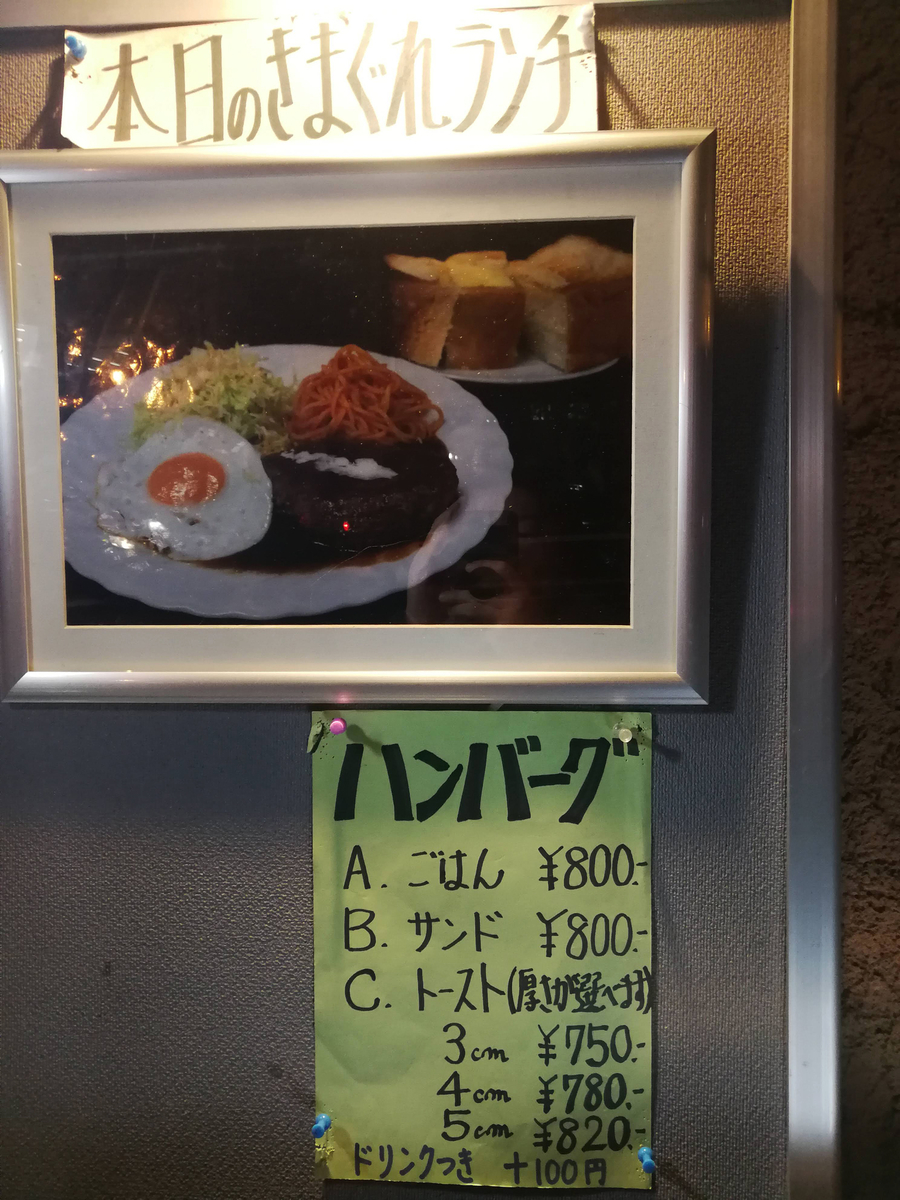 本日のきまぐれランチ
ハンバーグ
A. ごはん ¥800.-
B. サンド ¥800.-
C. トースト(厚さが選べます)
3cm ¥750.-
4cm ¥780.-
5cm ¥820.-
ドリンクつき +100円